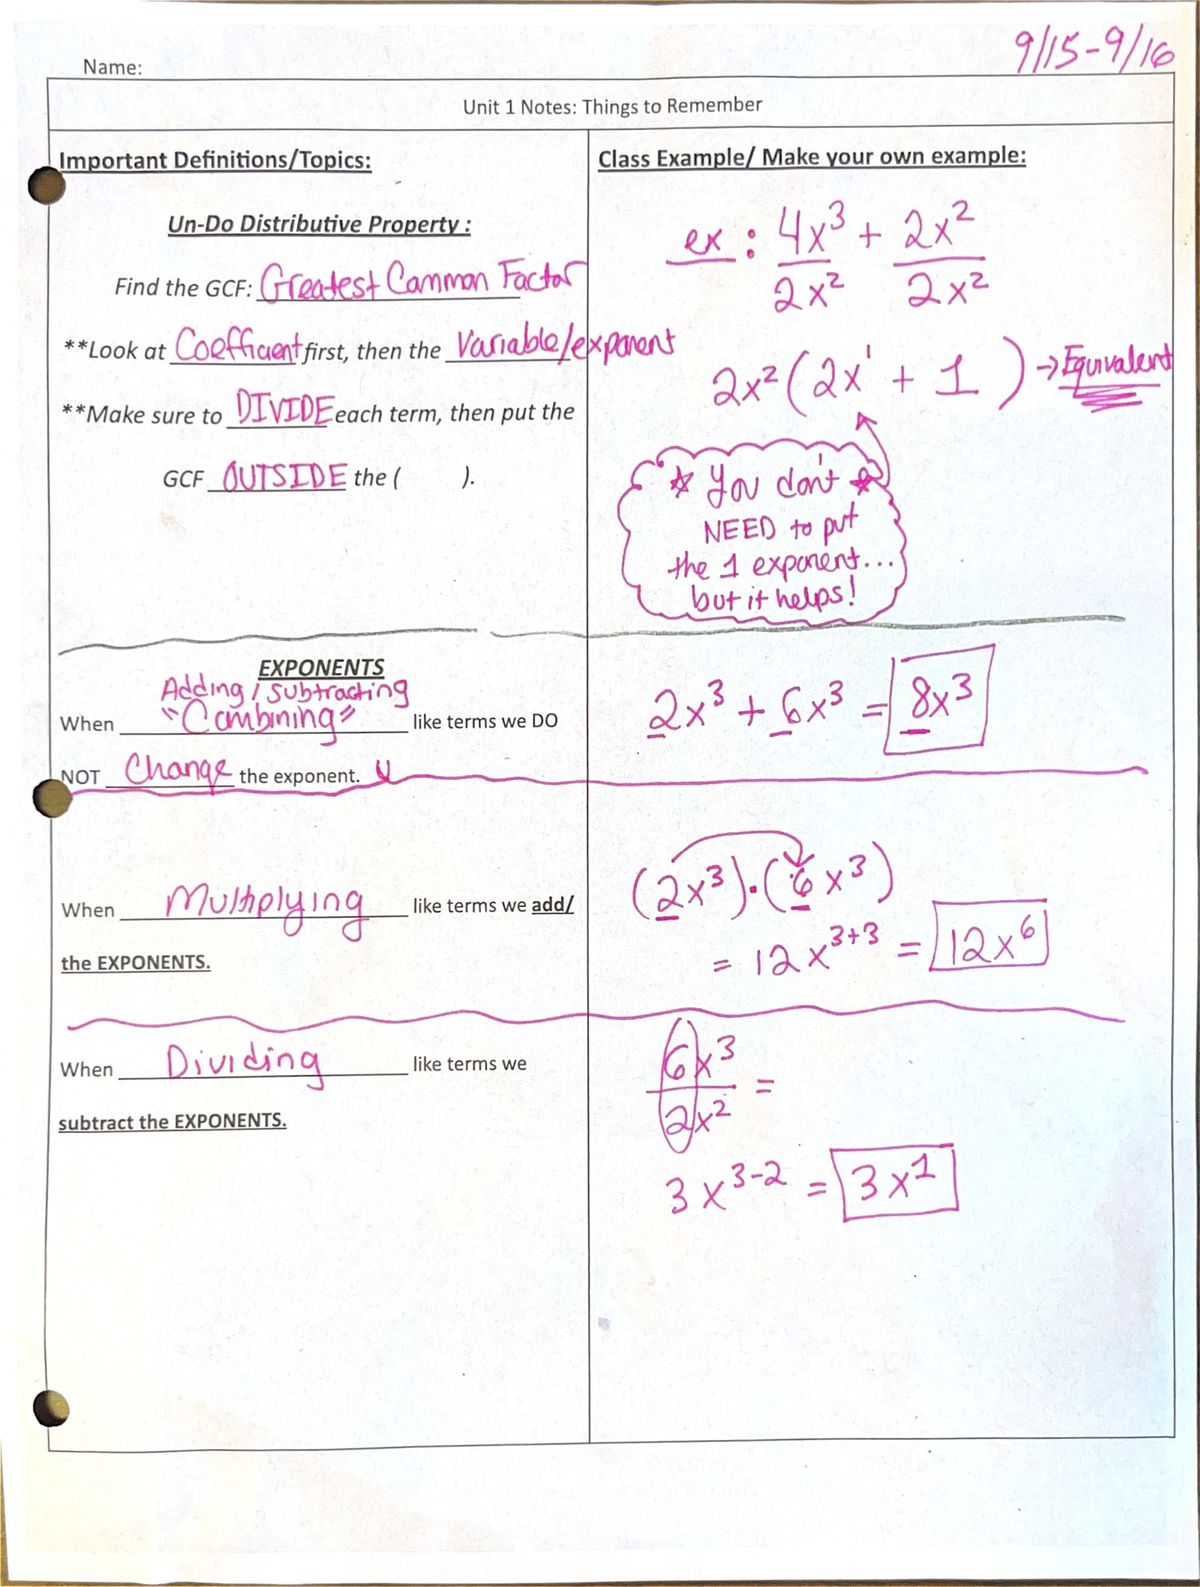 9/15-9/16
Name:
Unit 1 Notes: Things to Remember
Important Definitions/Topics:
Un-Do Distributive Property :
Find the GCF: Greatest Common Factor
**Look at Coefficient first, then the Variable/exponent
**Make sure to DIVIDE each term, then put the
GCF OUTSIDE the (      ).
Class Example/ Make your own example:
ex : 4x³ + 2x²
2x² 2x²
2x² ( 2x¹ + 1 ) → Equivalent
☆ You don't
NEED to put
the 1 exponent...
but it helps!
EXPONENTS
Adding / Subtracting
When "Combining" like terms we DO
NOT Change the exponent.
2x³ + 6x³ = 8x³
When Multiplying like terms we add/
the EXPONENTS.
(2x³)·(6x³)
= 12x³⁺³ = 12x⁶
When Dividing like terms we
subtract the EXPONENTS.
6x³
2x² =
3x³⁻² = 3x¹